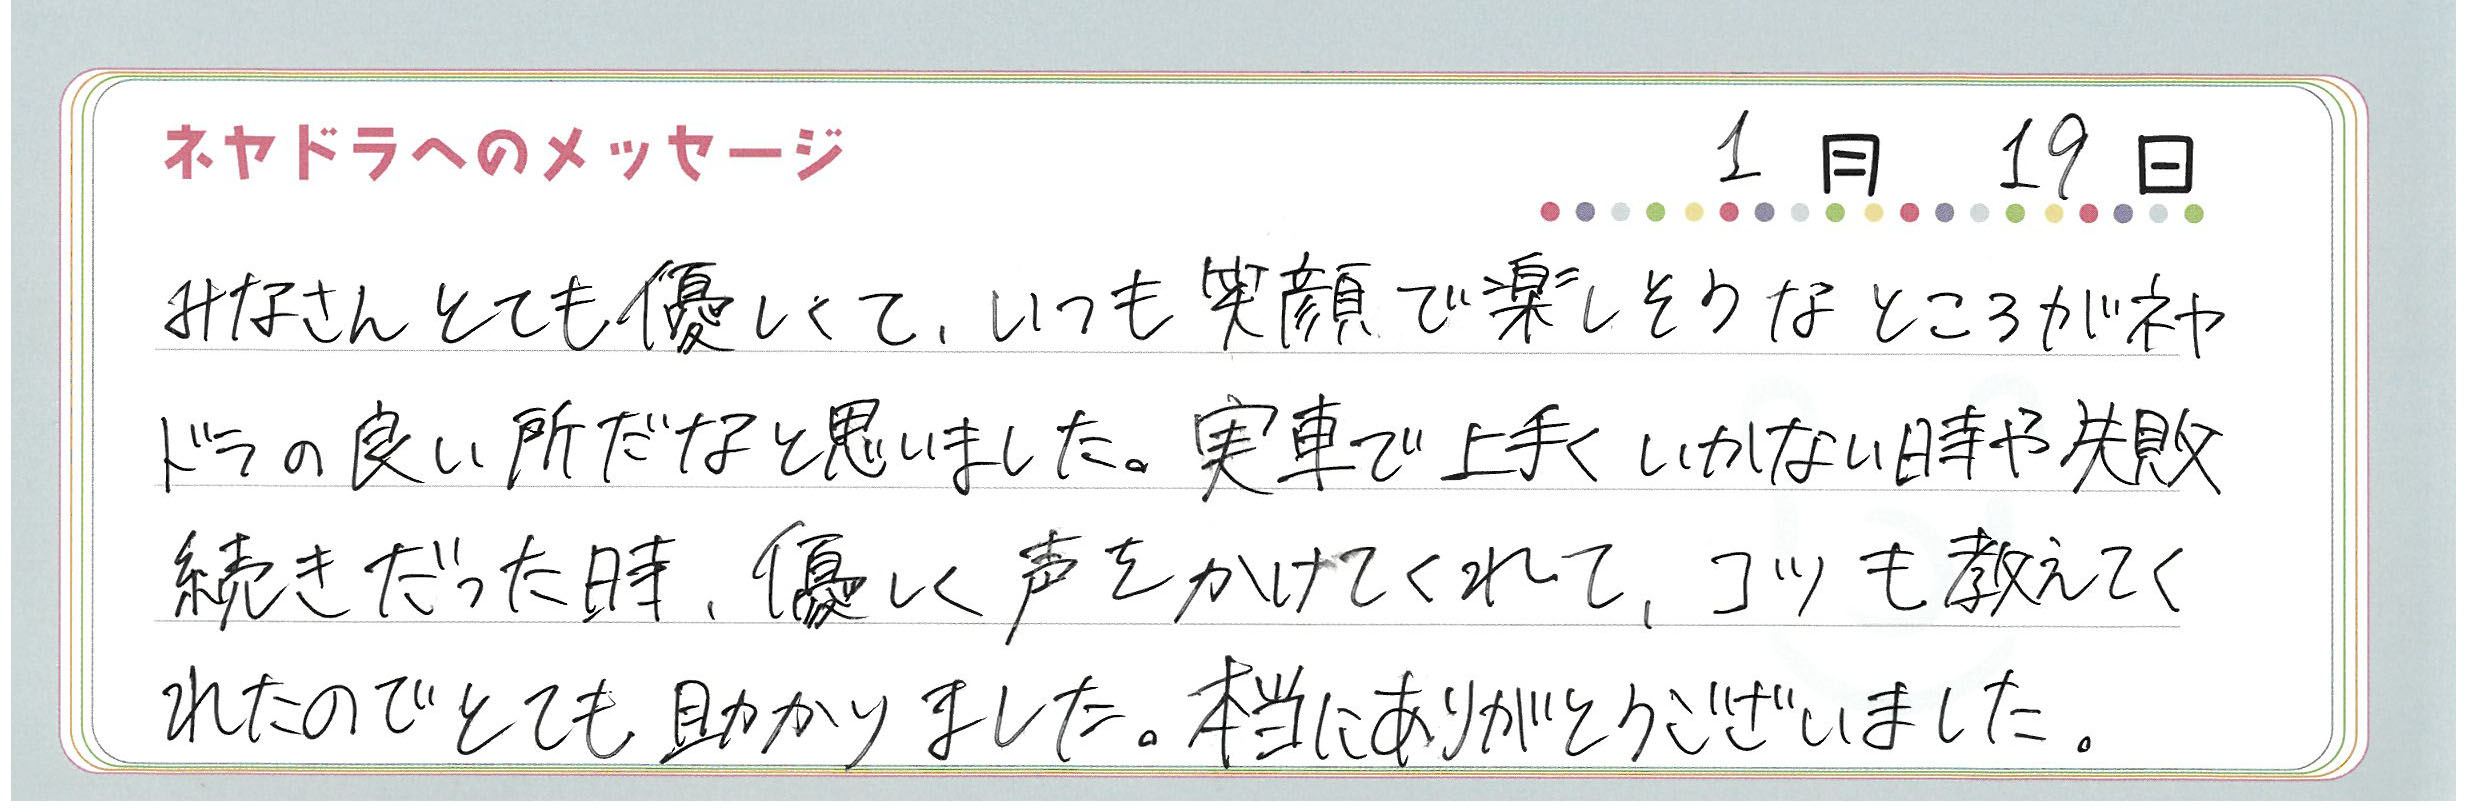 ネヤドラへのメッセージ
1月 19日
みなさんとても優しくて、いつも笑顔で楽しそうなところがネヤ
ドラの良い所だなと思いました。実車で上手くいかない時や失敗
続きだった時、優しく声をかけてくれて、コツも教えてく
れたのでとても助かりました。本当にありがとうございました。